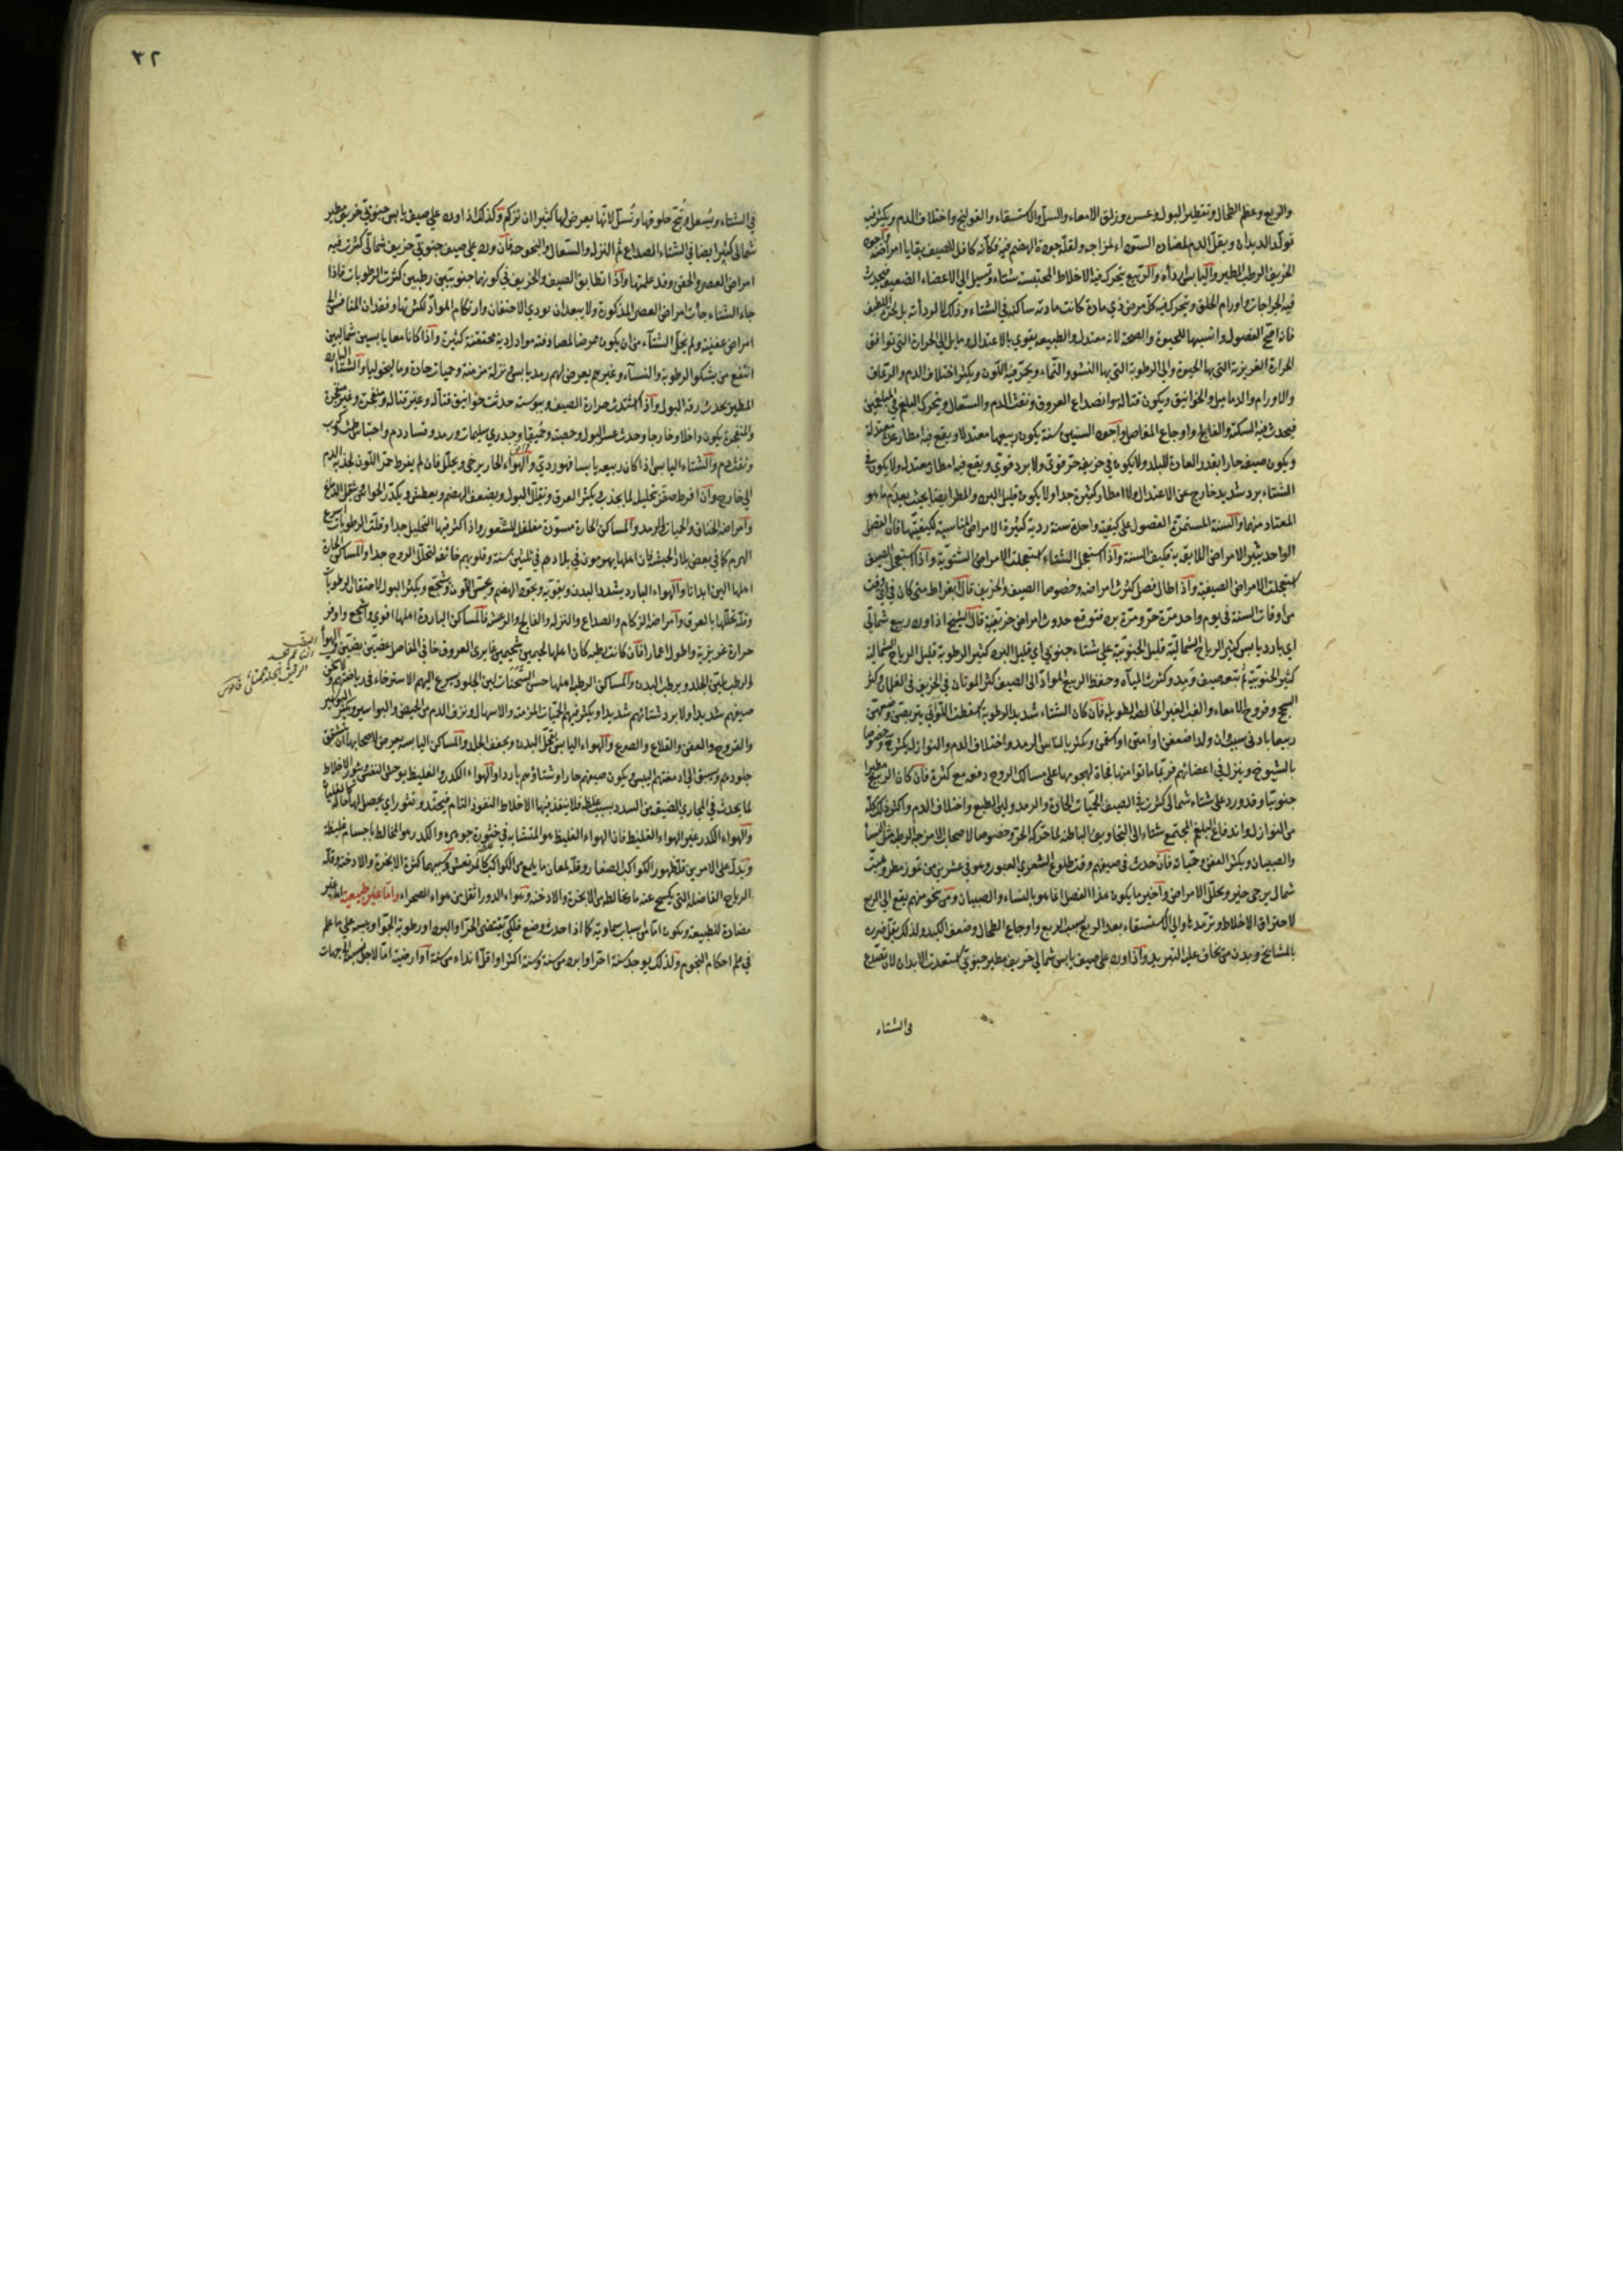 والربع وعظم الطحال وتقطير البول وعسره وزلق الامعاء والسل والاستسقاء والقولنج واختلاف الدم ويكثر فيه
تولد الديدان ويقل الدم لمضادته السوداء لمزاجه ولقلة جودة الهضم فيه فكانه كافل للصيف ببقايا امراضه واجود
الخريف الرطب المطير واليابس اردأه والربيع تتحرك فيه الاخلاط المحتبسة شتاء وتسيل الى الاعضاء الضعيفة فيحدث
فيه الخراجات واورام الحلق وتتحرك فيه كل مرض ذي مادة كانت مادته ساكنة في الشتاء وذلك لا لردأته بل لحره اللطيف
فانه اصح الفصول وانسبها للحيوة والصحة لانه معتدل والطبيعة تقوي بالاعتدال وما يل الى الحرارة التي توافق
الحرارة الغريزية التي بها الحيوة والى الرطوبة التي بها النشو والنماء ويحمر فيه اللون ويكثر اختلاف الدم والرعاف
والاورام والدماميل والخوانيق ويكون قتالة وانصداع العروق ونفث الدم والسعال وتتحرك البلغم في المبلغمين
فيحدث فيه السكتة والفالج واوجاع المفاصل واجود السنين سنة يكون ربيعها معتدلا ويقع فيه امطار معتدلة
ويكون صيفه حارا بقدر العادة للبلد ولا يكون في خريفه حر قوي ولا برد قوي ويقع فيه امطار معتدلة ولا يكون في
الشتاء برد شديد خارج عن الاعتدال ولا امطار كثيرة جدا ولا يكون قليل البرد والمطر ايضا بحيث يعدم ما هو
المعتاد منهما والسنة المستمرة الفصول على كيفية واحدة سنة ردية كثيرة الامراض المناسبة لكيفيتها فان الفصل
الواحد يثير الامراض اللايقة به فكيف السنة واذا استعجل الشتاء استعجلت الامراض الشتوية واذا استعجل الصيف
استعجلت الامراض الصيفية واذا طال فصل كثرت امراضه وخصوصا الصيف والخريف قال بقراط متى كان في اي وقت
من اوقات السنة في يوم واحد مرة حر ومرة برد فتوقع حدوث امراض خريفية قال الشيخ اذا ورد ربيع شمالي
اي بارد يابس كثير الرياح الشمالية قليل الجنوبية على شتاء جنوبي اي قليل البرد كثير الرطوبة قليل الرياح الشمالية
كثير الجنوبية ثم تبعه صيف ومد وكثرت المياه وحفظ الربيع المواد الى الصيف كثر الموتان في الخريف في الغلمان وكثر
السحج وقروح الامعاء والغب الغير الخالصة الطويلة فان كان الشتاء شديد الرطوبة اسقطت اللواتي يتربصن وضعهن
ربيعا بادنى سبب وان ولدن اضعفن او امتن او اسقمن ويكثر بالناس الرمد واختلاف الدم والنوازل يكثر وخصوصا
بالشيوخ وينزل في اعصابهم فربما ماتوا منها فجاة لهجومها على مسالك الروح دفعة مع كثرة فان كان الربيع مطيرا
جنوبيا وقد ورد على شتاء شمالي كثرت في الصيف الحميات الحادة والرمد ولين الطبع واختلاف الدم واكثر ذلك كله
من النوازل واندفاع البلغم المجتمع شتاء الى التجاويف الباطنة لما حركه الحر وخصوصا لاصحاب الامزجة الرطبة مثل النساء
والصبيان ويكثر العفن وحميات فان حدث في صيفهم وقت طلوع الشعرى العبور وهو في عشرين من تموز مطر وهبت
شمال يرجى خير وتحلل الامراض واخير ما يكون هذا الفصل انما هو بالنساء والصبيان ومن نجو منهم يقع الى الربع
لاحتراق الاخلاط وترمدها والى الاستسقاء بعد الربع بسبب الربع واوجاع الطحال وضعف الكبد ولذلك يقل ضرره
بالمشايخ وبدن من يخاف عليه التبريد واذا ورد على صيف يابس شمالي خريف مطير جنوبي استعدت الابدان لان تصدع
في الشتاء
٣٢
في الشتاء ويسعل وتبح حلوقها وتسل لانها يعرض لها كثيرا ان تزكم وكذلك اذا ورد على صيف يابس جنوبي خريف مطير
شمالي كثر ايضا في الشتاء الصداع ثم النزلة والسعال والبحوحة فان ورد على صيف جنوبي خريف شمالي كثرت فيه
امراض العصر والحقن وقد علمتها واذا تطابق الصيف والخريف في كونهما جنوبيين رطبين كثرت الرطوبات فاذا
جاء الشتاء جأت امراض العصر المذكورة ولا يبعد ان يودي الاحتقان وارتكام المواد لكثرتها وفقدان المنافس الى
امراض عفنية ولم يخل الشتاء من ان يكون ممرضا لمصادفته مواد ردية محتقنة كثيرة واذا كانا معا يابسين شماليين
انتفع من يشكوا الرطوبة والنساء وغيرهم يعرض لهم رمد يابس ونزلة مزمنة وحميات حادة وماليخوليا والشتاء البارد
المطير يحدث رقة البول واذا اشتدت حرارة الصيف ويبوسته حدثت خوانيق قتالة وغير قتالة ومنفجرة وغير منفجرة
والمنفجرة يكون داخلا وخارجا وحدث عسر البول وحصبة وحميقا وجدري سليمات ورمد وفساد دم واحتباس طمث وكرب
ونفث دم والشتاء اليابس اذا كان ربيعه يابسا فهو ردي والهواء الحار يرخي ويحلل فان لم يفرط حمر اللون لجذبه الدم
الى خارج وان افرط صفر بتحليل لما يجذب ويكثر العرق ويقلل البول ويضعف الهضم ويعطش ويكدر الحواس ويثقل الدماغ
وامراضه الخناق والحميات والرمد والمساكن الحارة مسودة مفلفلة للشعور واذا كثر فيها التحليل جدا وقلت الرطوبات اسرع
الهرم كما في بعض بلاد الحبشة فان اهلها يهرمون في بلادهم في ثلثين سنة وقلوبهم خائفة لتحلل الروح جدا والمساكن الحارة
اهلها الين ابدانا والهواء البارد يشدد البدن ويقويه ويجود الهضم ويحسن اللون ويشجع ويكثر البول لاحتقان الرطوبات
وقلة تحللها بالعرق وامراضه الزكام والصداع والنزلة والفالج والرعشة والمساكن الباردة اهلها اقوى واشجع واوفر
حرارة غريزية واطول اعمارا فان كانت رطبة كان اهلها لحيمين شحيمين غايري العروق خافي المفاصل غضين بضين والهواء
الرطب يلين الجلد ويرطب البدن والمساكن الرطبة اهلها حسن السحنات لين الجلود يسرع اليهم الاسترخاء في رياضتهم ولا يكون
صيفهم شديدا ولا برد شتائهم شديدا ويكثر فيهم الحميات المزمنة والاسهال ونزف الدم من الحيض والبواسير ويكثر البواسير
والقروح والعفن والقلاع والصرع والهواء اليابس يقحل البدن ويجفف الجلد والمساكن اليابسة يعرض لاصحابها ان يتشقق
جلودهم ويسبق الى ادمغتهم اليبس ويكون صيفهم حارا وشتاؤهم باردا والهواء الكدر والغليظ يوحش النفس ويثور الاخلاط
لما يحدث في المجاري الضيقة من السدد بسبب غلظه فلا ينفذ فيها الاخلاط النفوذ التام فيحتد وتثور اي يحصل لها كالغليان
والهواء الكدر غير الهواء الغليظ فان الهواء الغليظ هو المتشابه في خثورة جوهره والكدر هو المخالط باجسام غليظة
ويدل على الامرين قلة ظهور الكواكب الصغار وقلة لمعان ما يلمع من الكواكب كالمرتعش وسببهما كثرة الابخرة والادخنة وقلة
الرياح الفاضلة التي يكسح عنه ما يخالطه من الابخرة والادخنة وهواء الدور اثقل من هواء الصحراء واما غير طبيعية اما غير
مضادة للطبيعة ويكون اما لاسباب سماوية كما اذا حدث وضع فلكي يقتضي الحر او البرد او رطوبة الجو او يبسه على ما علم
في علم احكام النجوم ولذلك يوجد سنة احر او ابرد من سنة وسنة اكثر او اقل انداء من سنة او ارضية اما لاجل نسبة الجهات